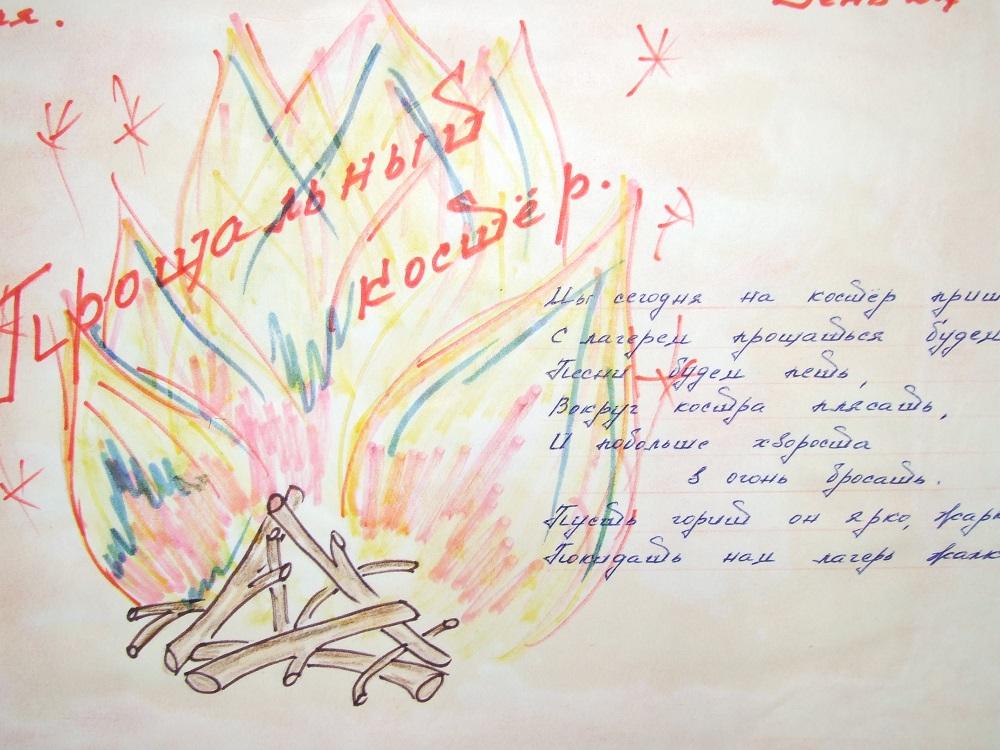 Прощальный
костёр.
Мы сегодня на костёр
С лагерем прощаться
Песни будем петь,
Вокруг костра плясать,
И побольше хвороста
в огонь бросать.
Пусть горит он ярко,
Покидать нам лагерь